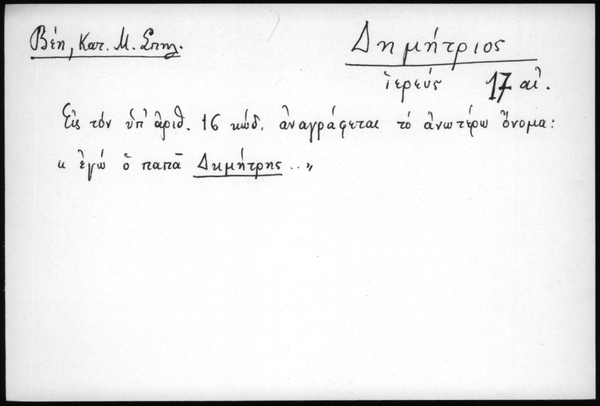 Βέη, Κατ. Μ. Σπηλ.
Δημήτριος
ἱερεύς 17 αἰ.
Εἰς τόν ὑπ' ἀριθ. 16 κώδ. ἀναγράφεται τό ἀνωτέρω ὄνομα:
« ἐγώ ὁ παπᾶ Δημήτρης .. »